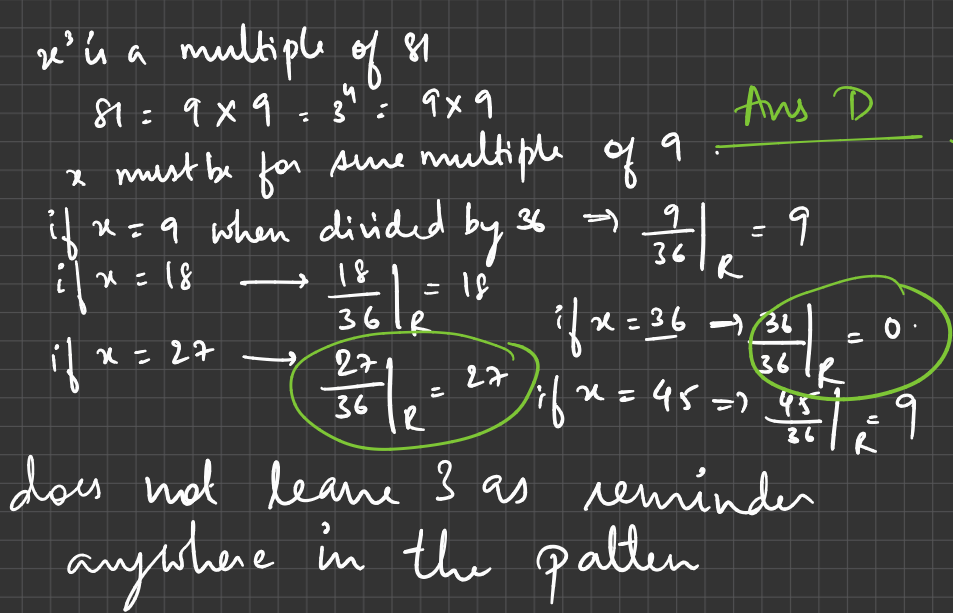 x³ is a multiple of 81
81 = 9 × 9 = 3⁴ = 9 × 9
Ans D
x must be for sure multiple of 9.
if x = 9 when divided by 36 ⇒ 9/36|R = 9
if x = 18 → 18/36|R = 18
if x = 27 → 27/36|R = 27
if x = 36 → 36/36|R = 0.
if x = 45 ⇒ 45/36|R = 9
does not leave 3 as reminder
anywhere in the patten